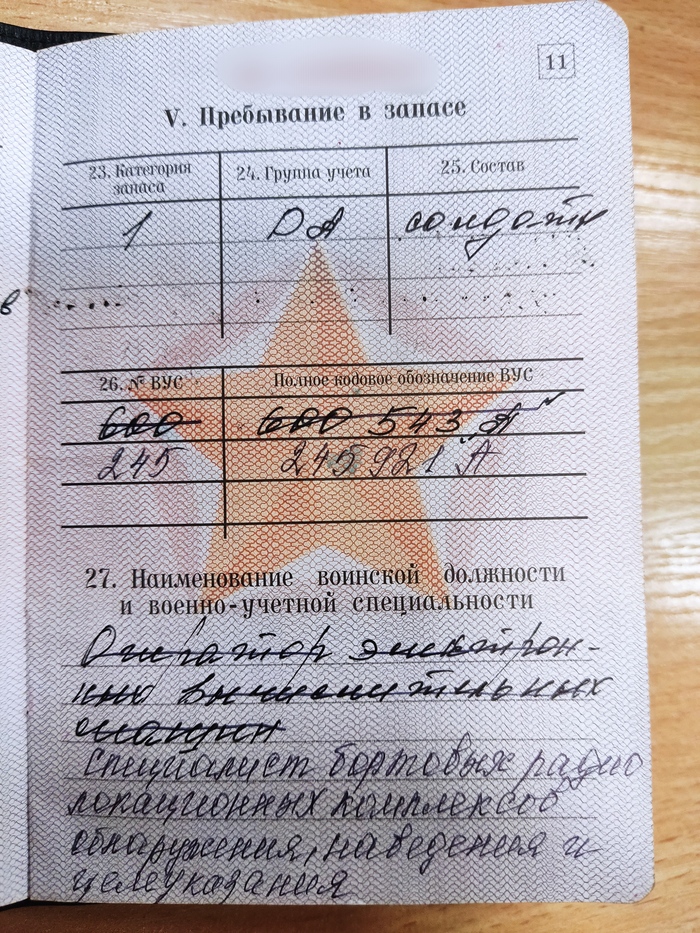 11
V. Пребывание в запасе
23. Категория запаса
24. Группа учета
25. Состав
1
РА
солдаты
в
26. № ВУС
Полное кодовое обозначение ВУС
600
600 543 "А"
245
245 921 "А"
27. Наименование воинской должности
и военно-учетной специальности
Оператор электрон-
но вычислительных
машин
Специалист бортовых радио
локационных комплексов
обнаружения, наведения и
целеуказания